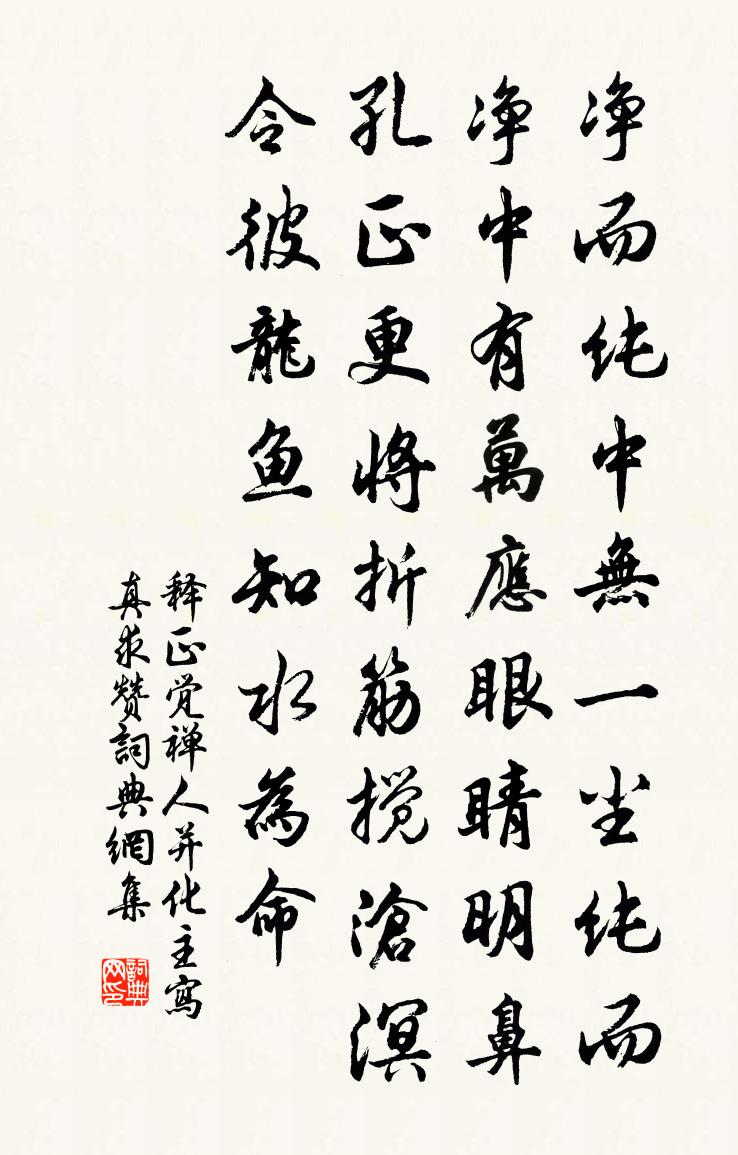 净而纯中無一尘纯而
净中有萬應眼睛明鼻
孔正更将折筋搅滄溟
令彼龍鱼知水為命
释正觉禅人并化主寫
真求赞詞典網集
詞典网印